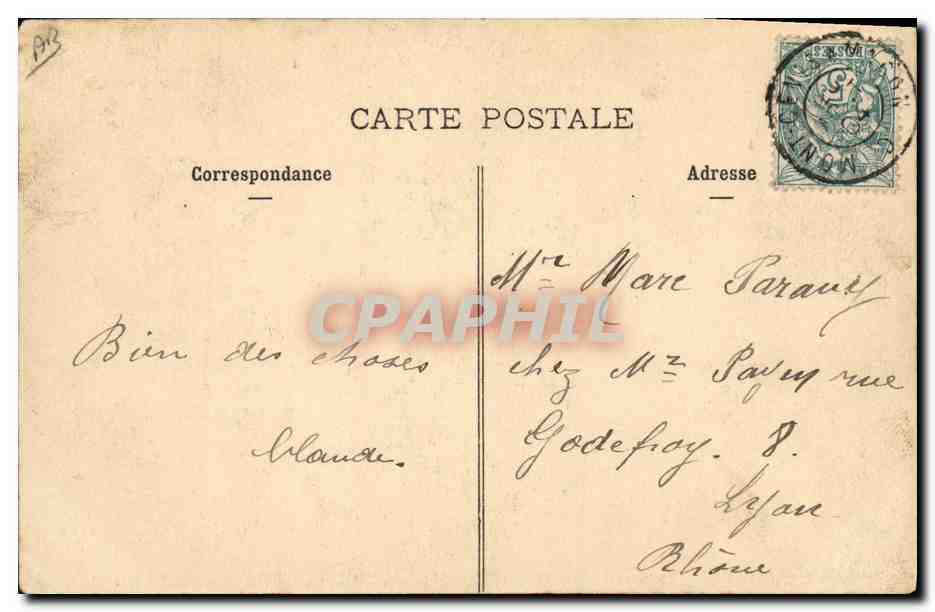 AB
CARTE POSTALE
Correspondance
Adresse
Bien des choses
Claude.
Mr Marc Parauy
chez Mr Pavy rue
Godefroy. 8.
Lyon
Rhône
CPAPHIL
POSTES